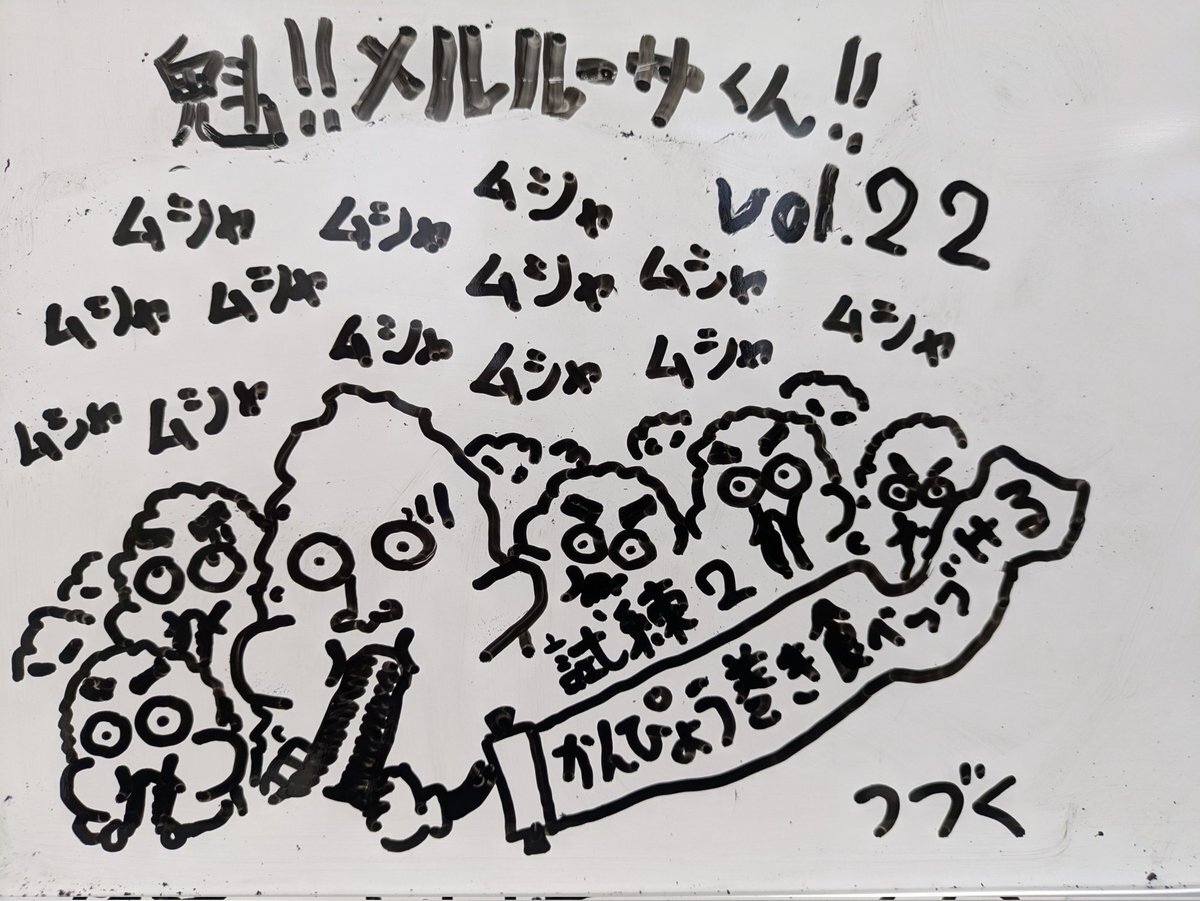 魁!!メルルーサくん!!
vol.22
ムシャ ムシャ ムシャ
ムシャ ムシャ ムシャ ムシャ ムシャ
ムシャ ムシャ ムシャ
ムシャ ムシャ
試練2
かんぴょう巻き食べつづける
つづく